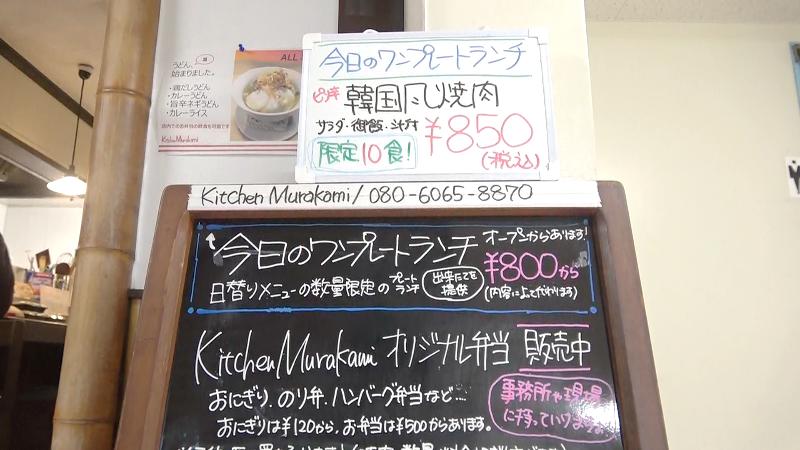 うどん、
始まりました。
・鶏だしうどん
・カレーうどん
・旨辛ネギうどん
・カレーライス
店内でのお弁当の飲食も可能です
Kitchen Murakami
ALL
今日のワンプレートランチ
ピリ辛 韓国風焼肉
サラダ・御飯・汁付
¥850
(税込)
限定10食!
Kitchen Murakami / 080-6065-8870
今日のワンプレートランチ
オープンからあります!
日替りメニューの数量限定のプレートランチ
出来たてを提供
¥800から
(内容によって代わります)
Kitchen Murakami オリジナル弁当 販売中
おにぎり、のり弁、ハンバーグ弁当など…
おにぎりは¥120から、お弁当は¥500からあります。
事務所や現場
に持っていけます。